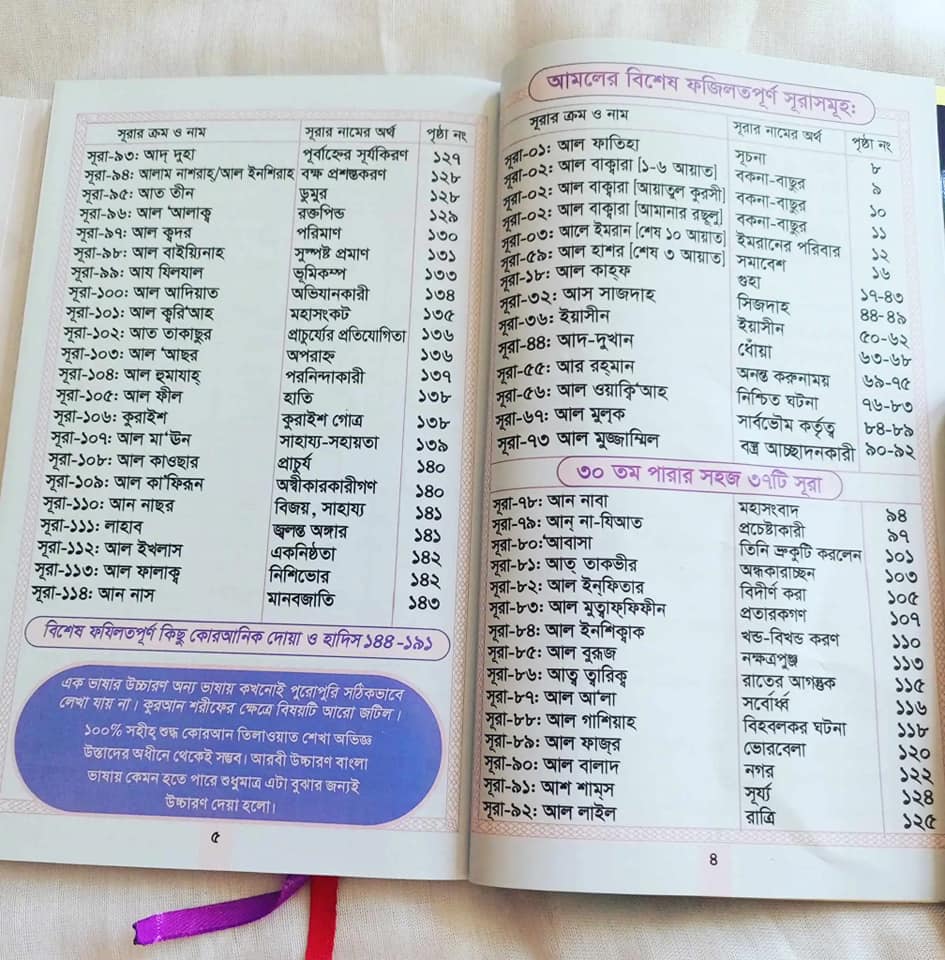 আমলের বিশেষ ফজিলতপূর্ণ সূরাসমূহ:
সূরার ক্রম ও নাম সূরার নামের অর্থ পৃষ্ঠা নং
সূরা-০১: আল ফাতিহা সূচনা ৮
সূরা-০২: আল বাক্বারা [১-৬ আয়াত] বকনা-বাছুর ৯
সূরা-০২: আল বাক্বারা [আয়াতুল কুরসী] বকনা-বাছুর ১০
সূরা-০২: আল বাক্বারা [আমানার রছূলু] বকনা-বাছুর ১১
সূরা-০৩: আলে ইমরান [শেষ ১০ আয়াত] ইমরানের পরিবার ১২
সূরা-৫৯: আল হাশর [শেষ ৩ আয়াত] সমাবেশ ১৬
সূরা-১৮: আল কাহ্ফ গুহা ১৭-৪৩
সূরা-৩২: আস সাজদাহ সিজদাহ ৪৪-৪৯
সূরা-৩৬: ইয়াসীন ইয়াসীন ৫০-৬২
সূরা-৪৪: আদ-দুখান ধোঁয়া ৬৩-৬৮
সূরা-৫৫: আর রহমান অনন্ত করুনাময় ৬৯-৭৫
সূরা-৫৬: আল ওয়াক্বি'আহ নিশ্চিত ঘটনা ৭৬-৮৩
সূরা-৬৭: আল মুল্ক সার্বভৌম কর্তৃত্ব ৮৪-৮৯
সূরা-৭৩ আল মুজ্জাম্মিল বস্ত্র আচ্ছাদনকারী ৯০-৯২
৩০ তম পারার সহজ ৩৭টি সূরা
সূরা-৭৮: আন নাবা মহাসংবাদ ৯৪
সূরা-৭৯: আন্ না-যিআত প্রচেষ্টাকারী ৯৭
সূরা-৮০:'আবাসা তিনি ভ্রুকুটি করলেন ১০১
সূরা-৮১: আত্ তাকভীর অন্ধকারাচ্ছন্ন ১০৩
সূরা-৮২: আল ইন্ফিতার বিদীর্ণ করা ১০৫
সূরা-৮৩: আল মুত্বাফ্ফিফীন প্রতারকগণ ১০৭
সূরা-৮৪: আল ইনশিক্বাক খন্ড-বিখন্ড করণ ১১০
সূরা-৮৫: আল বুরূজ নক্ষত্রপুঞ্জ ১১৩
সূরা-৮৬: আত্ব ত্বারিক্ব রাতের আগন্তুক ১১৫
সূরা-৮৭: আল আ'লা সর্বোর্ধ্ব ১১৬
সূরা-৮৮: আল গাশিয়াহ বিহবলকর ঘটনা ১১৮
সূরা-৮৯: আল ফাজ্র ভোরবেলা ১২০
সূরা-৯০: আল বালাদ নগর ১২২
সূরা-৯১: আশ শাম্স সূর্য্য ১২৪
সূরা-৯২: আল লাইল রাত্রি ১২৫
৪
সূরার ক্রম ও নাম সূরার নামের অর্থ পৃষ্ঠা নং
সূরা-৯৩: আদ্ দুহা পূর্বাহ্নের সূর্যকিরণ ১২৭
সূরা-৯৪: আলাম নাশরাহ্/আল ইনশিরাহ বক্ষ প্রশস্তকরণ ১২৮
সূরা-৯৫: আত তীন ডুমুর ১২৮
সূরা-৯৬: আল 'আলাক্ব রক্তপিন্ড ১২৯
সূরা-৯৭: আল ক্বদর পরিমাণ ১৩০
সূরা-৯৮: আল বাইয়্যিনাহ সুস্পষ্ট প্রমাণ ১৩১
সূরা-৯৯: আয যিলযাল ভূমিকম্প ১৩৩
সূরা-১০০: আল আদিয়াত অভিযানকারী ১৩৪
সূরা-১০১: আল ক্বরি'আহ মহাসংকট ১৩৫
সূরা-১০২: আত তাকাছুর প্রাচুর্য্যের প্রতিযোগিতা ১৩৬
সূরা-১০৩: আল 'আছর অপরাহ্ন ১৩৬
সূরা-১০৪: আল হুমাযাহ্ পরনিন্দাকারী ১৩৭
সূরা-১০৫: আল ফীল হাতি ১৩৮
সূরা-১০৬: কুরাইশ কুরাইশ গোত্র ১৩৮
সূরা-১০৭: আল মা'ঊন সাহায্য-সহায়তা ১৩৯
সূরা-১০৮: আল কাওছার প্রাচুর্য ১৪০
সূরা-১০৯: আল কা'ফিরূন অস্বীকারকারীগণ ১৪০
সূরা-১১০: আন নাছর বিজয়, সাহায্য ১৪১
সূরা-১১১: লাহাব জ্বলন্ত অঙ্গার ১৪১
সূরা-১১২: আল ইখলাস একনিষ্ঠতা ১৪২
সূরা-১১৩: আল ফালাক্ব নিশিভোর ১৪২
সূরা-১১৪: আন নাস মানবজাতি ১৪৩
বিশেষ ফযিলতপূর্ণ কিছু কোরআনিক দোয়া ও হাদিস ১৪৪-১৯১
এক ভাষার উচ্চারণ অন্য ভাষায় কখনোই পুরোপুরি সঠিকভাবে
লেখা যায় না। কুরআন শরীফের ক্ষেত্রে বিষয়টি আরো জটিল।
১০০% সহীহ্ শুদ্ধ কোরআন তিলাওয়াত শেখা অভিজ্ঞ
উস্তাদের অধীনে থেকেই সম্ভব। আরবী উচ্চারণ বাংলা
ভাষায় কেমন হতে পারে শুধুমাত্র এটা বুঝার জন্যই
উচ্চারণ দেয়া হলো।
৫